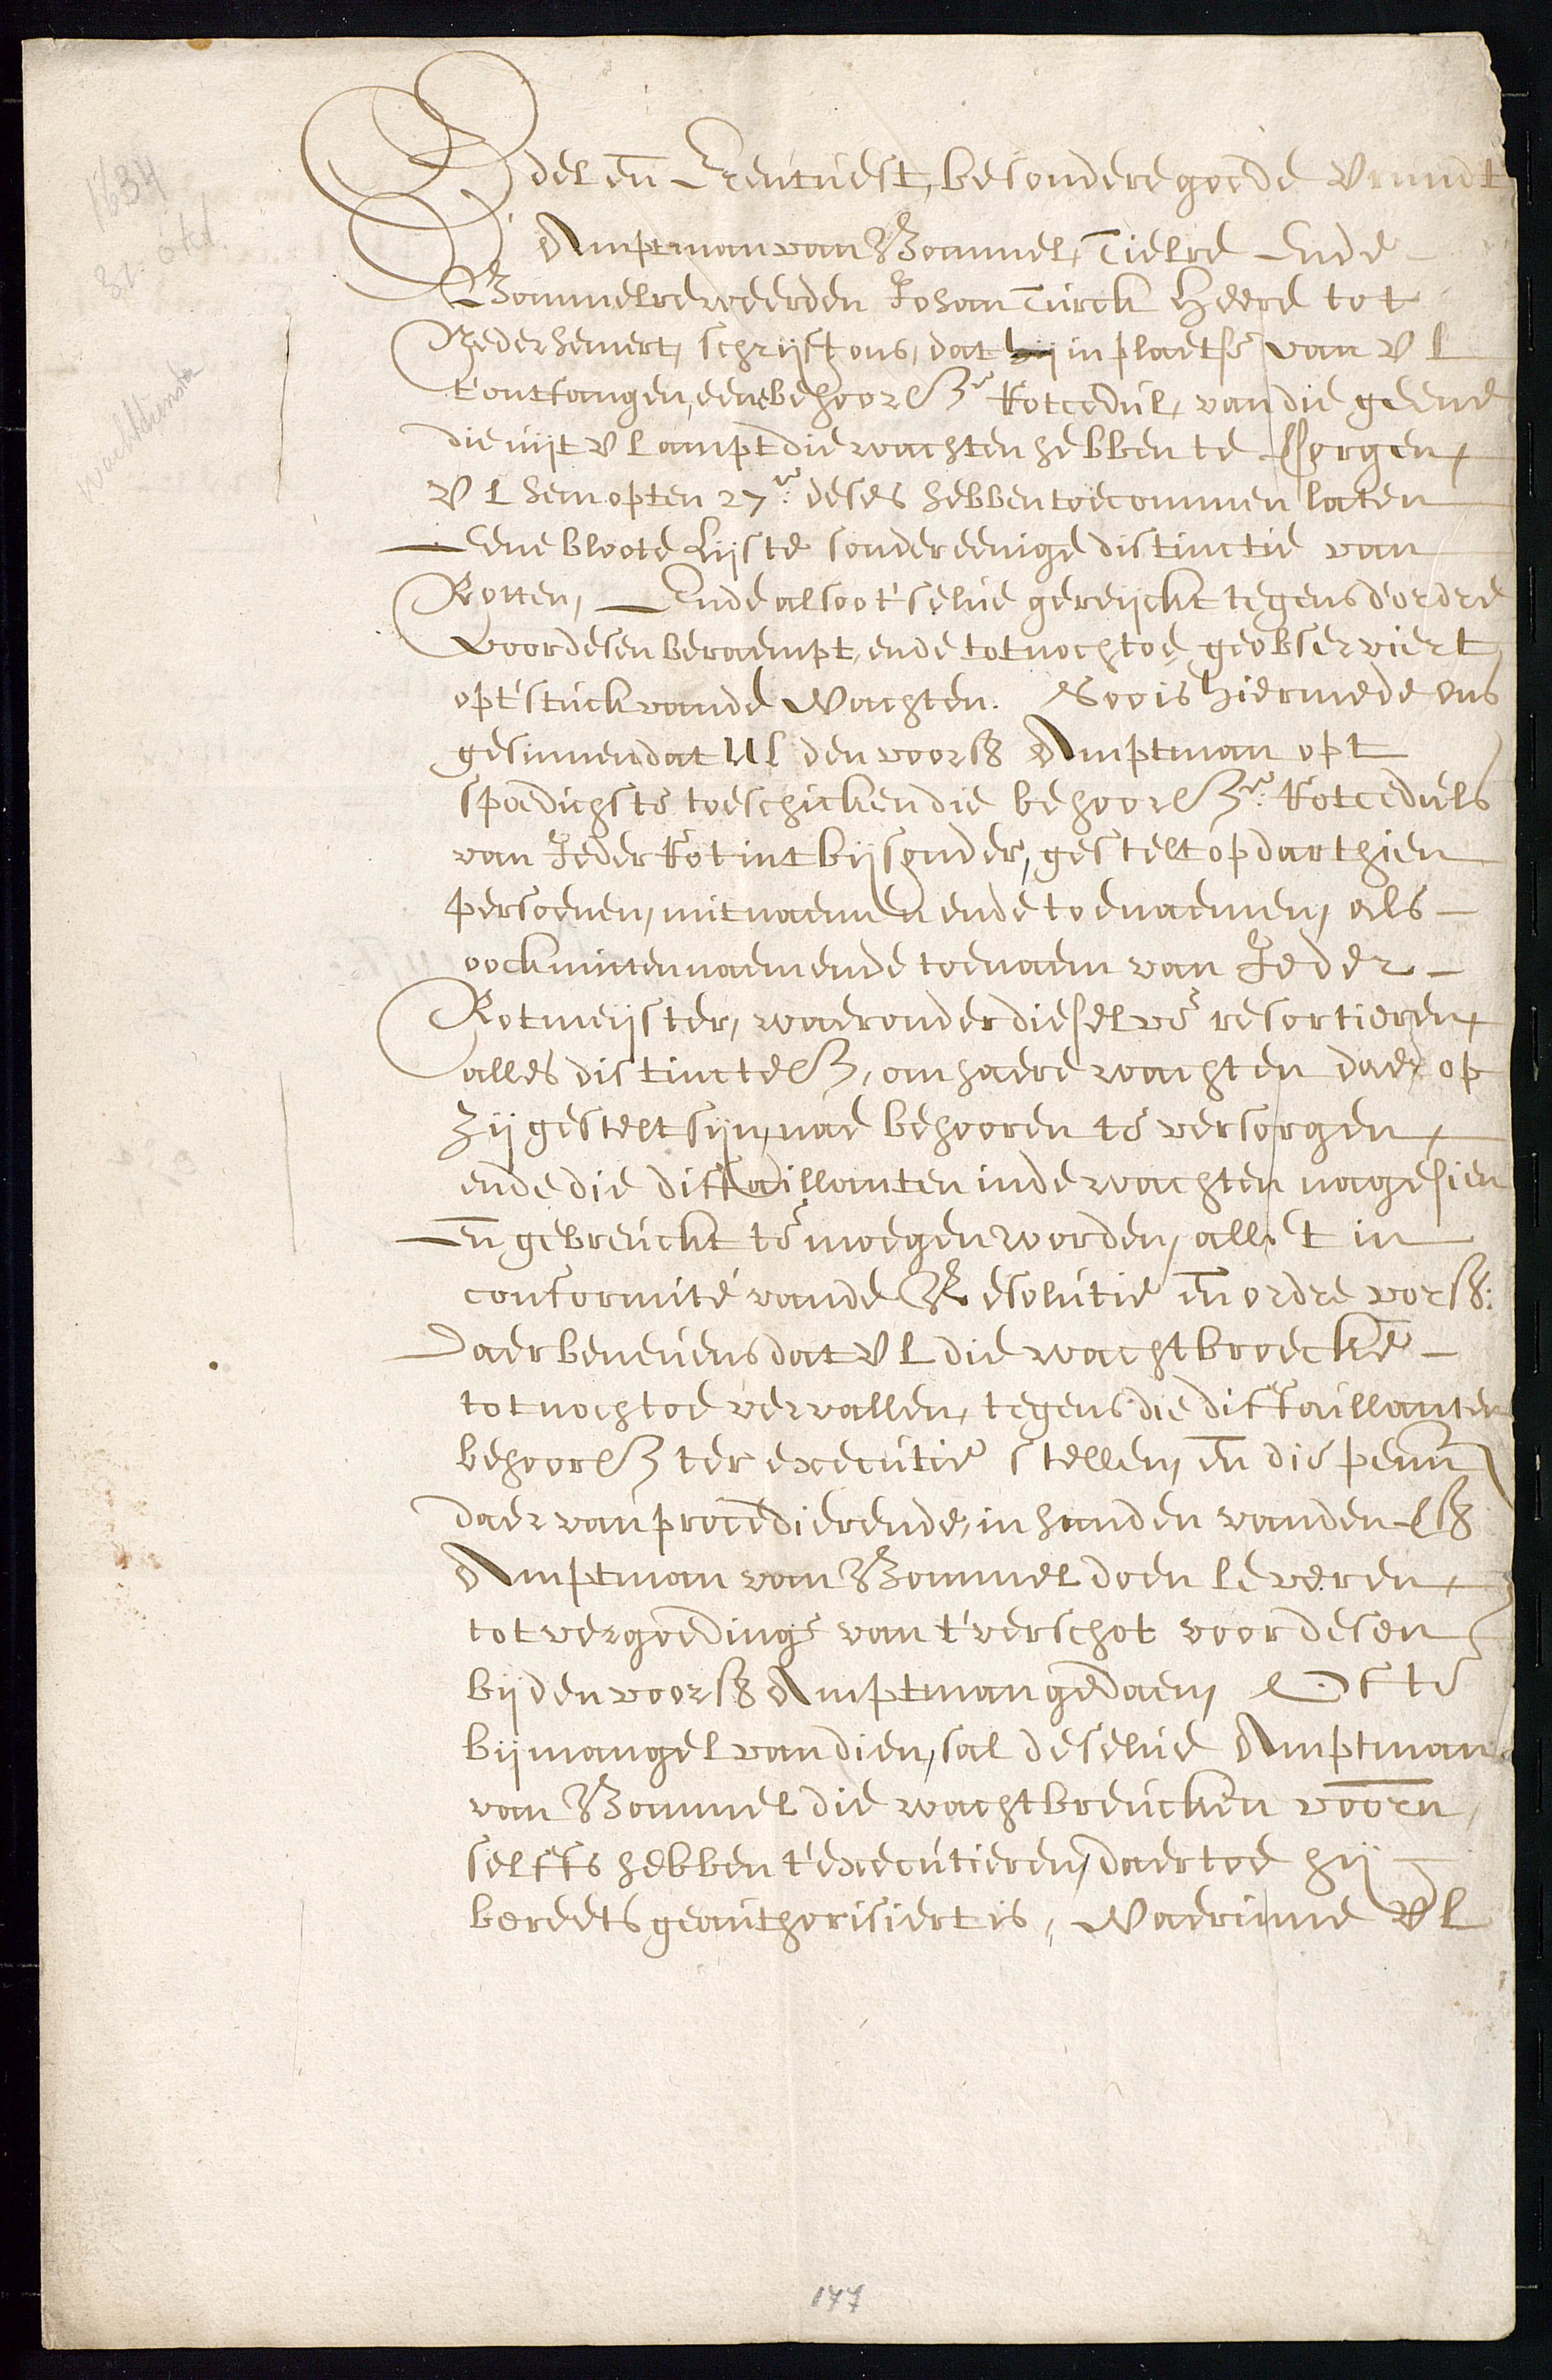 1634
31 oct.
wachtdiensten
Edel en Erentuest, besondere goede Vrundt
Amptman van Bommel, Tielre Ende
Bommelreweerden Johan Turck Heere tot
Nederhemert, schrijft ons, dat hij in plaetse van V L
t'ontfangen, eene behoorl. Rotcedul, van die geene
die uijt V L ampt die wachten hebben te besorgen,
V L hem opten 27e deses hebben toecommen laten
Eene bloote Lijste sonder eenige distinctie van
Rotten, Ende alsoo t'selue gereijckt tegens d'ordre
voor desen beraempt, ende tot noch toe geobserviert
opt' stuck vande Wachten. Soo is hiermede ons
gesinnen dat Ul den voors Amptman opt
spoedichste toeschicken die behoorl. Rotceduls
van Jeder Rot int bijsonder, gestelt op darthien
persoenen, mit naemen ende toenaemen, als
oock mitten naem ende toenaem van Jeder
Rotmeijster, waeronder dieselve resortieren,
alles distinctel, om haere wachten daer op
zij gestelt sijn, nae behooren te versorgen,
ende die diffaillanten inde wachten nagesien
En gebreuckt te moegen worden, allet in
conformité vande Resolutie en ordre vors:
Daerbeneuens dat V L die wachtbroecke
tot noch toe vervallen, tegens die diffaillanten
behoorl ter executie stellen, en die penn
daer van procedierende, in handen vanden ls
Amptman van Bommel doen leveren,
tot vergoedinge van t'verschot voor desen
bijden voors Amptman gedaen, Ofte
bij mangel van dien, sal deselue Amptman
van Bommel die wachtbreucken voorn
selffs hebben t'executieren, daertoe hij
bereets geauthorisiert is, Waerinne V L
177